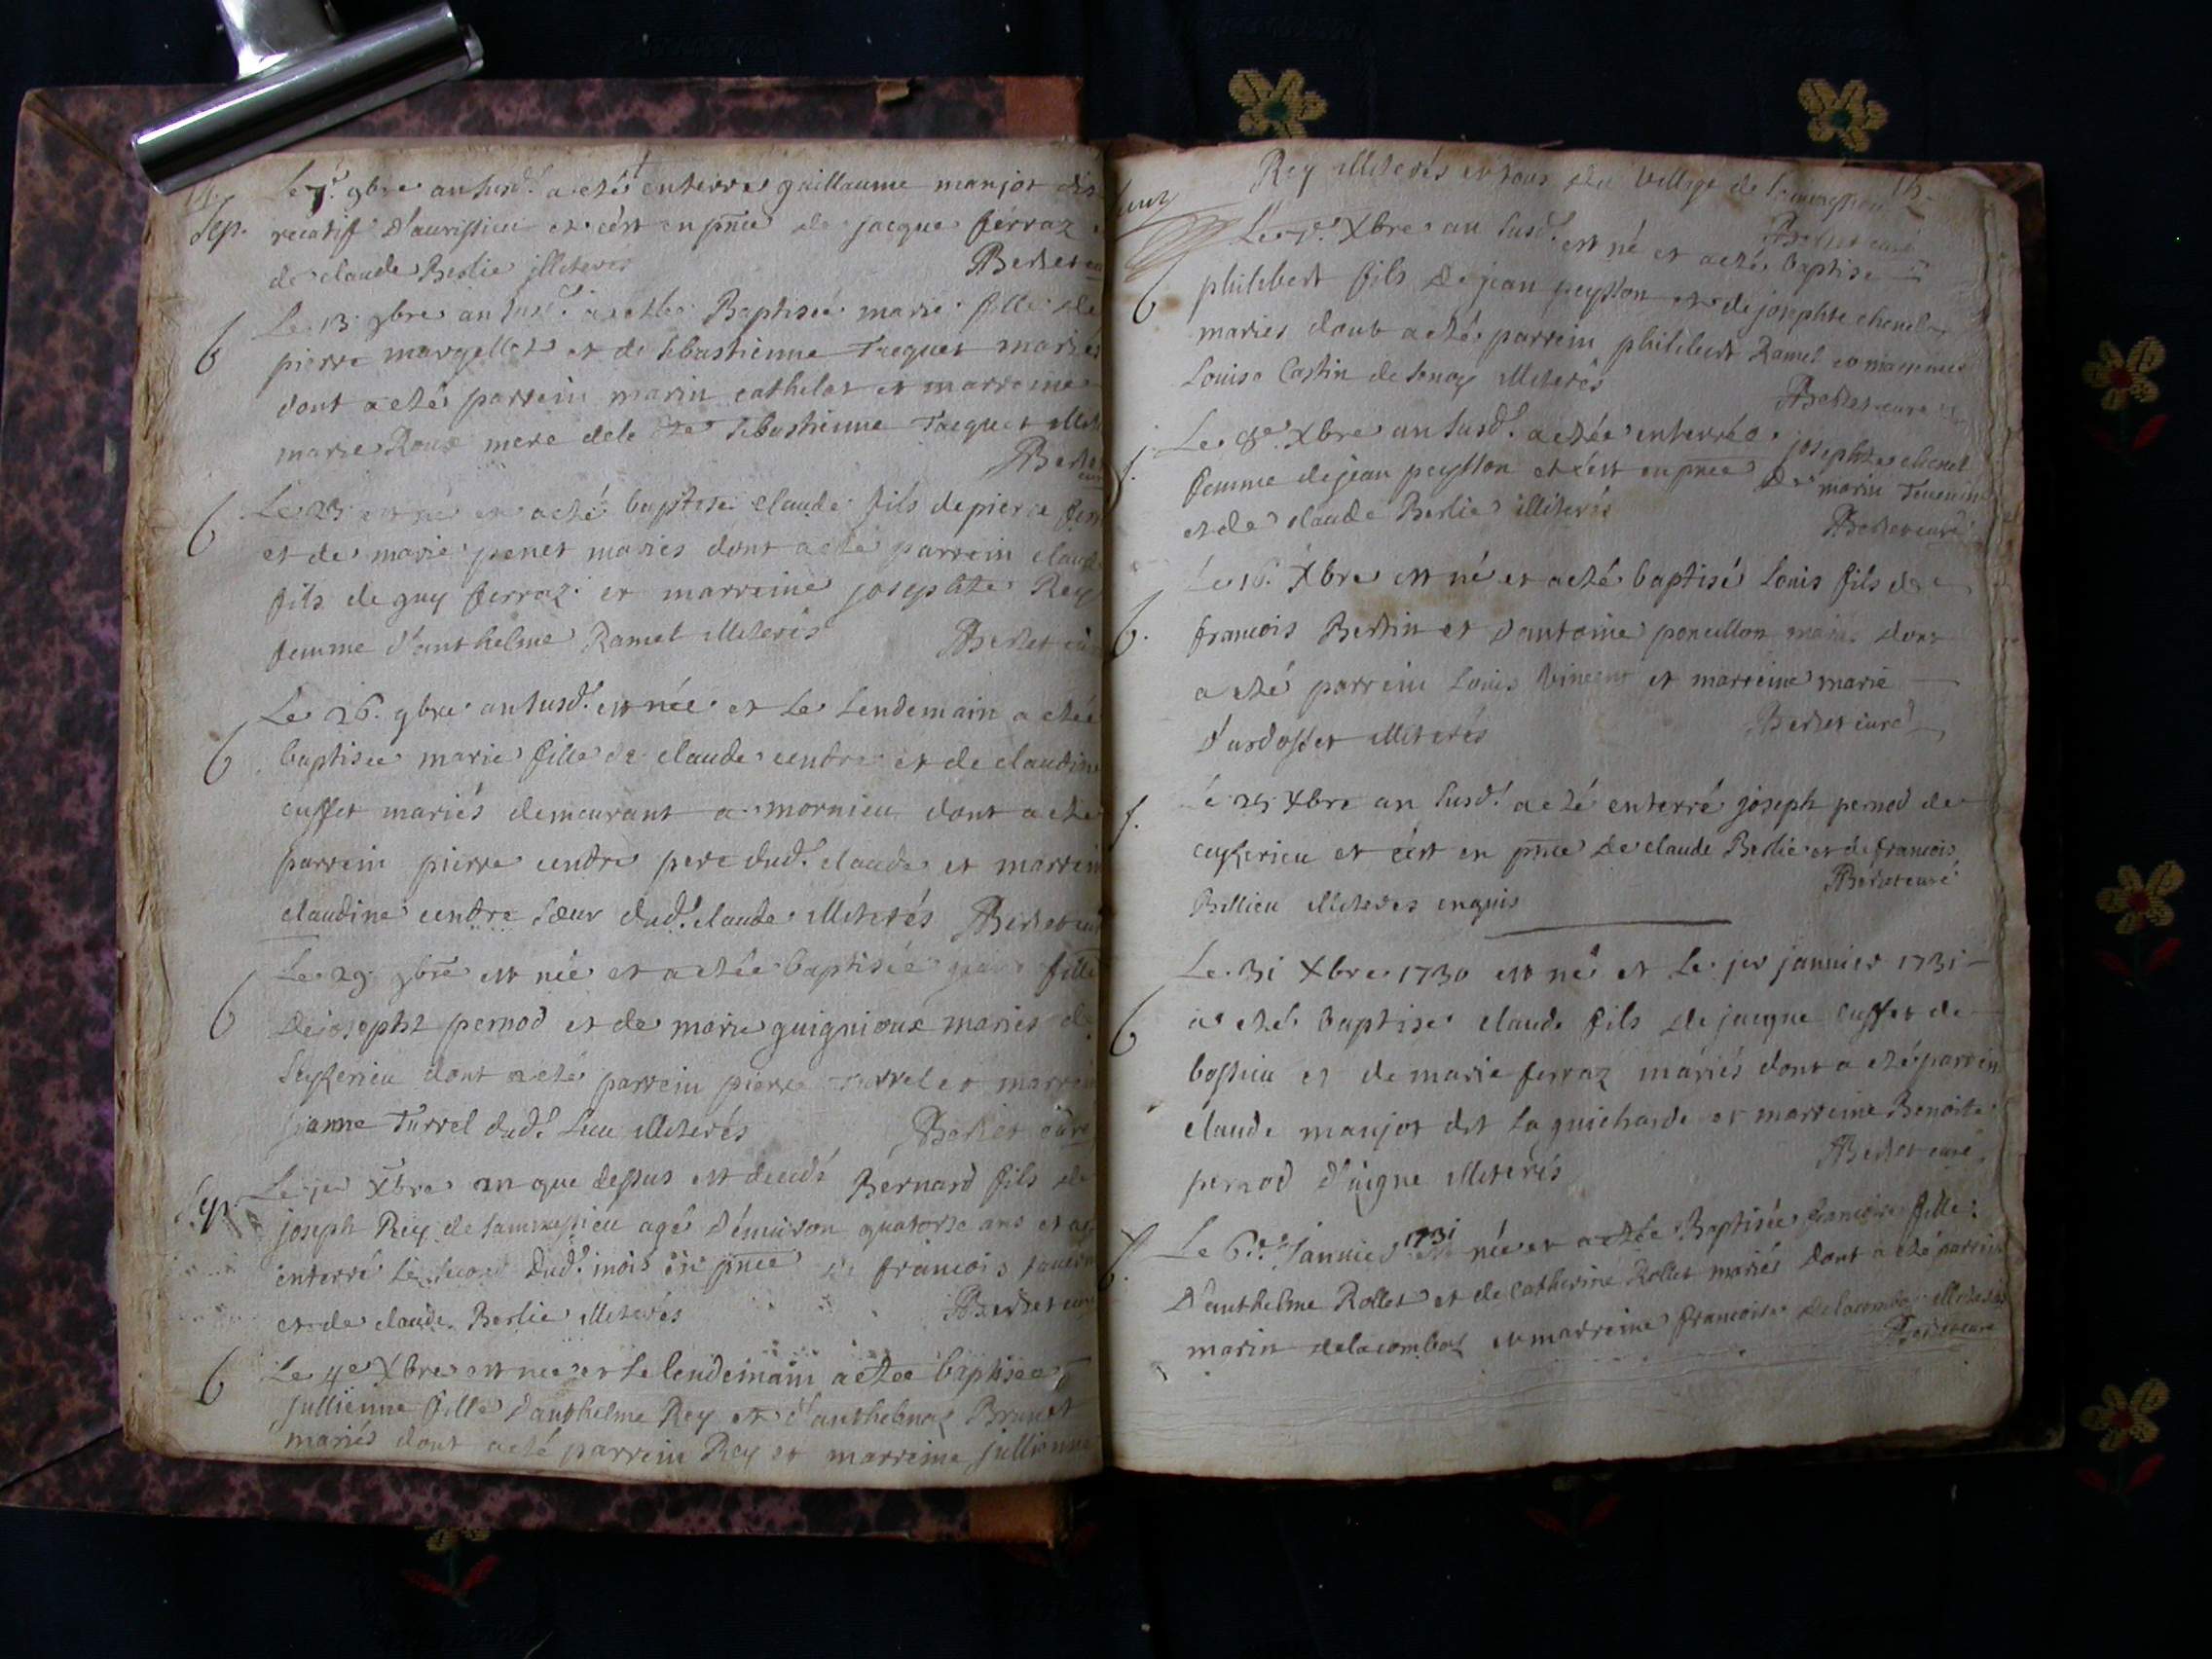 14.
Sep. Le 7e. 9bre an susd. a eté enterré guillaume manjot dit
recatif d'aurissieu et c'est en pnce de jacque ferraz
de claude Berlie illiterés Berlet
b Le 13. 9bre an susd. a eté Baptisée marie fille de
pierre margellet et de sebastienne Tacquet mariés
dont a eté parrein marin cathelat et marreine
marie Roux mere de la dte sebastienne Tacquet
Berlet
b Le 25 est né et a eté baptisé claude fils de pierre
et de marie penet mariés dont a eté parrein claude
fils de guy ferraz et marreine josephte Rey
femme d'anthelme Ramel illiterés Berlet
b Le 26. 9bre an susd. est née et le lendemain a etée
baptisée marie fille de claude cendre et de claudine
cuffet mariés demeurant a mornieu dont a eté
parrein pierre cendre pere dud. claude et marrein
claudine cendre sœur dud. claude illiterés Berlet
b Le 29. 9bre est née et a etée baptisée fille
de joseph pernod et de marie guignioux mariés de
Seyzerieu dont a eté parrein pierre Turrel et marrein
jianne Turrel dud. lieu illiterés Berlet curé
Sep. Le jer Xbre an que dessus est decedé Bernard fils de
joseph Rey de sammessieu agé d'environ quatorze ans et a
enterré le second dud. mois en pnce de francois
et de claude Berlie illiterés Berlet curé
b Le 4e Xbre est nee et le lendemain a etee baptisee
jullienne fille d'anthelme Rey et d'anthelmaz Brunet
mariés dont a eté parrein Rey et marreine jullienne
Rey illiterés et tous du village de 15.
Berlet curé
Le 7e. Xbre an susd. est né et a eté baptisé
b philibert fils de jean peysson et de josephte chenel
mariés dont a eté parrein philibert Ramel et marreine
Louise Castin de illiterés
Berlet curé
s. Le 8e. Xbre an susd. a etée enterrée josephte chenel
femme de jean peysson et c'est en pnce de marin
et de claude Berlie illiterés
Berlet curé
Le 16. Xbre est né et a eté baptisé Louis fils de
b. francois Bertin et d'antoine dont
a eté parrein Louis Vincent et marreine marie
d'ardosset illiterés Berlet curé
s. Le 25 Xbre an susd. a eté enterré joseph pernod de
ceyzerieu et c'est en pnce de claude Berlie et de francois
Billieu illiteres enquis Berlet curé
Le 31 Xbre 1730 est né et Le jer jannier 1731
b a eté baptisé claude fils de jacque cuffet de
bossieu et de marie ferraz mariés dont a eté parrein
claude manjot dit la guicharde et marreine Benoite
pernod d'aigne illiterés Berlet curé
b. Le 6e. Jannier 1731 née et a etée Baptisée francoise fille
d'anthelme Rollet et de catherine Rollet mariés dont a eté parrein
marin delacombaz et marreine francoise delacombaz illiterés
Berlet curé